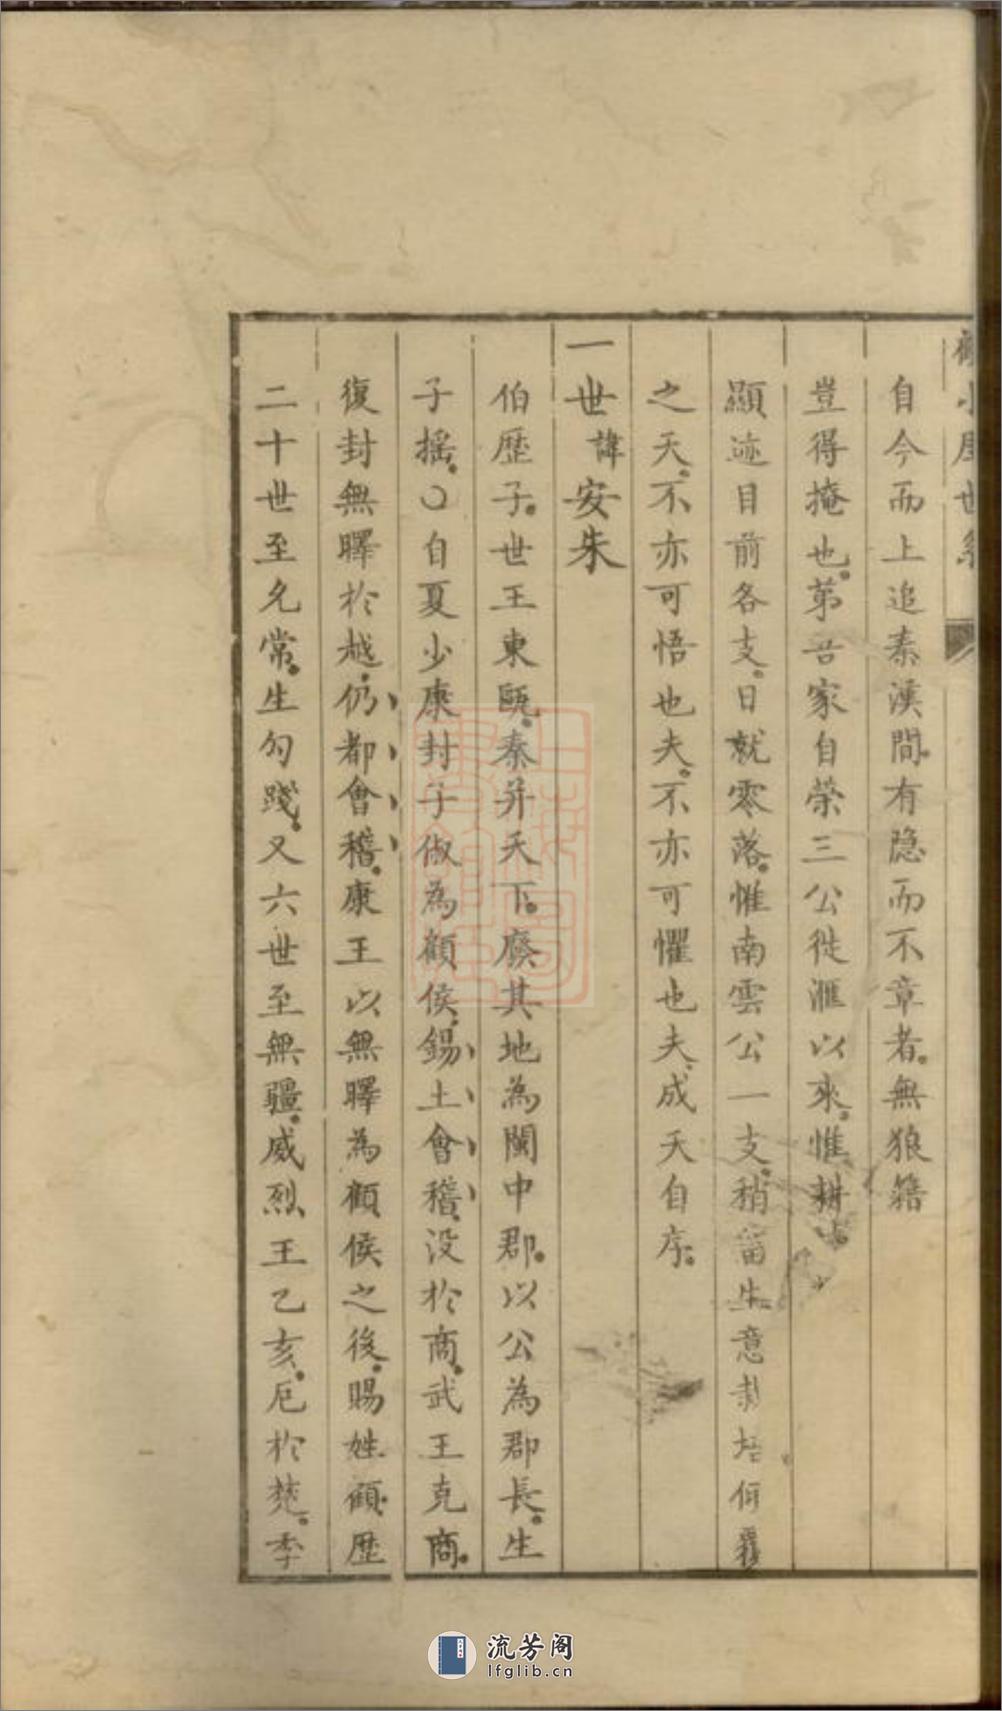 小
世
自今而上追秦漢間有隐而不章者無狼籍
豈得掩也第吾家自榮三公徙滙以來惟耕
顯迹目前各支日就零落惟南雲公一支稍留生意栽培何
之天不亦可悟也夫不亦可懼也夫成天自序
一世諱安朱
伯歷子世王東甌秦并天下廢其地為閩中郡以公為郡長生
子摇〇自夏少康封子俶為顧侯錫土會稽没於商武王克商
復封無曎於越仍都會稽康王以無曎為顧侯之後賜姓顧歷
二十世至允常生勾踐又六世至無疆威烈王乙亥厄於楚季
流芳阁
lfglib.cn